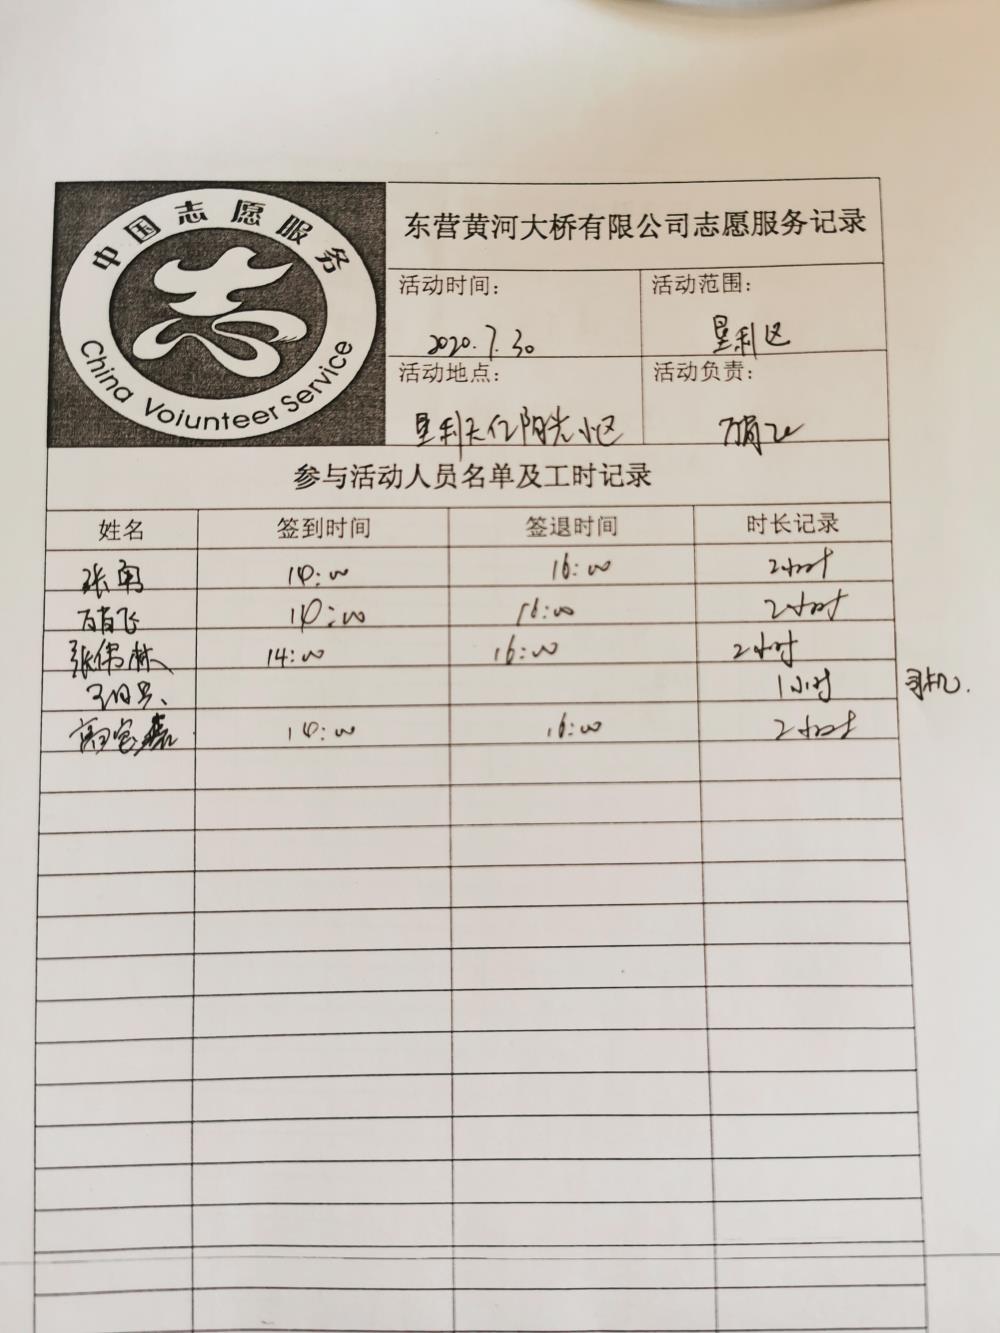 中国志愿服务
China Voiunteer Service
东营黄河大桥有限公司志愿服务记录
活动时间:
2020.7.30
活动范围:
垦利区
活动地点:
垦利天亿阳光小区
活动负责:
参与活动人员名单及工时记录
姓名 签到时间 签退时间 时长记录
张 14:00 16:00 2小时
飞 14:00 16:00 2小时
张伟林 14:00 16:00 2小时
1小时 司机.
14:00 16:00 2小时